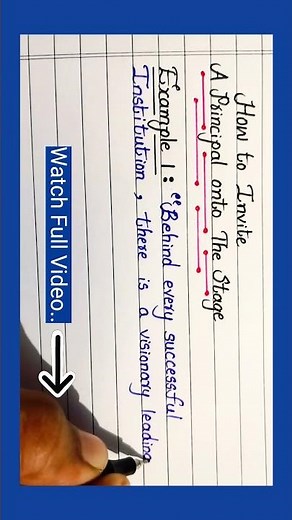 How to Invite
A Principal onto The Stage
Example 1: "Behind every successful
Institution, there is a visionary leading
Watch Full Video..